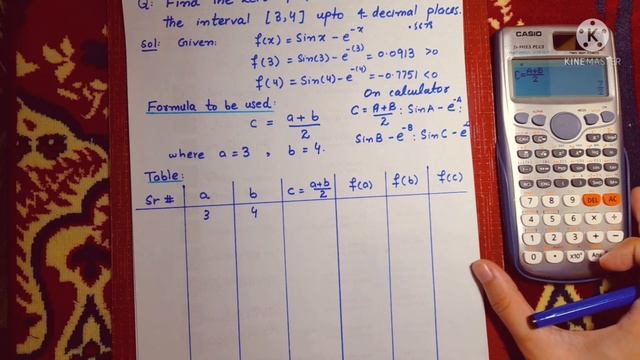 Q: Find the
the interval [3,4] upto 4 decimal places.
Sol: Given: f(x) = Sinx - e^-x
f(3) = Sin(3) - e^-(3) = 0.0913 >0
f(4) = Sin(4) - e^-(4) = -0.7751 <0
On calculator
Formula to be used:
C = A+B/2 : SinA - e^-A :
c = a+b/2
SinB - e^-B : SinC - e
where a = 3 , b = 4.
Table:
Sr # a b C = a+b/2 f(a) f(b) f(c)
3 4
CASIO
KINEMASTER
C=A+B/2
7 8 9 DEL AC
4 5 6 × ÷
1 2 3 + -
0 . ×10ˣ Ans